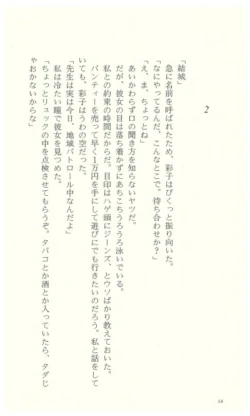 2
「結城」
急に名前を呼ばれたため、彩子はびくっと振り向いた。
「なにやってるんだ、こんなとこで。待ち合わせか?」
「え、ま、ちょっとね」
あいかわらず口の聞き方を知らないヤツだ。
だが、彼女の目は落ち着かずにあちこちうろうろ泳いでいる。
私との約束の時間だからだ。目印はハゲ頭にジーンズ、とウソばかり教えておいた。
パンティーを売って早く1万円を手にして遊びにでも行きたいのだろう。私と話をして
いても、彩子はうわの空だった。
「先生は実は今日、地域パトロール中なんだよ」
私は冷たい瞳で彼女を見つめた。
「ちょっとリュックの中を点検させてもらうぞ。タバコとか酒とか入っていたら、タダじ
ゃおかないからな」